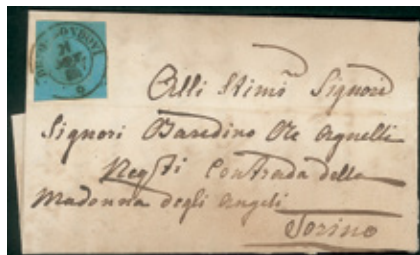 MONDOVI
Alli Stimi Signori
Signori Baredino Re Agnelli
Negti Contrada della
Madonna degli Angeli
Torino